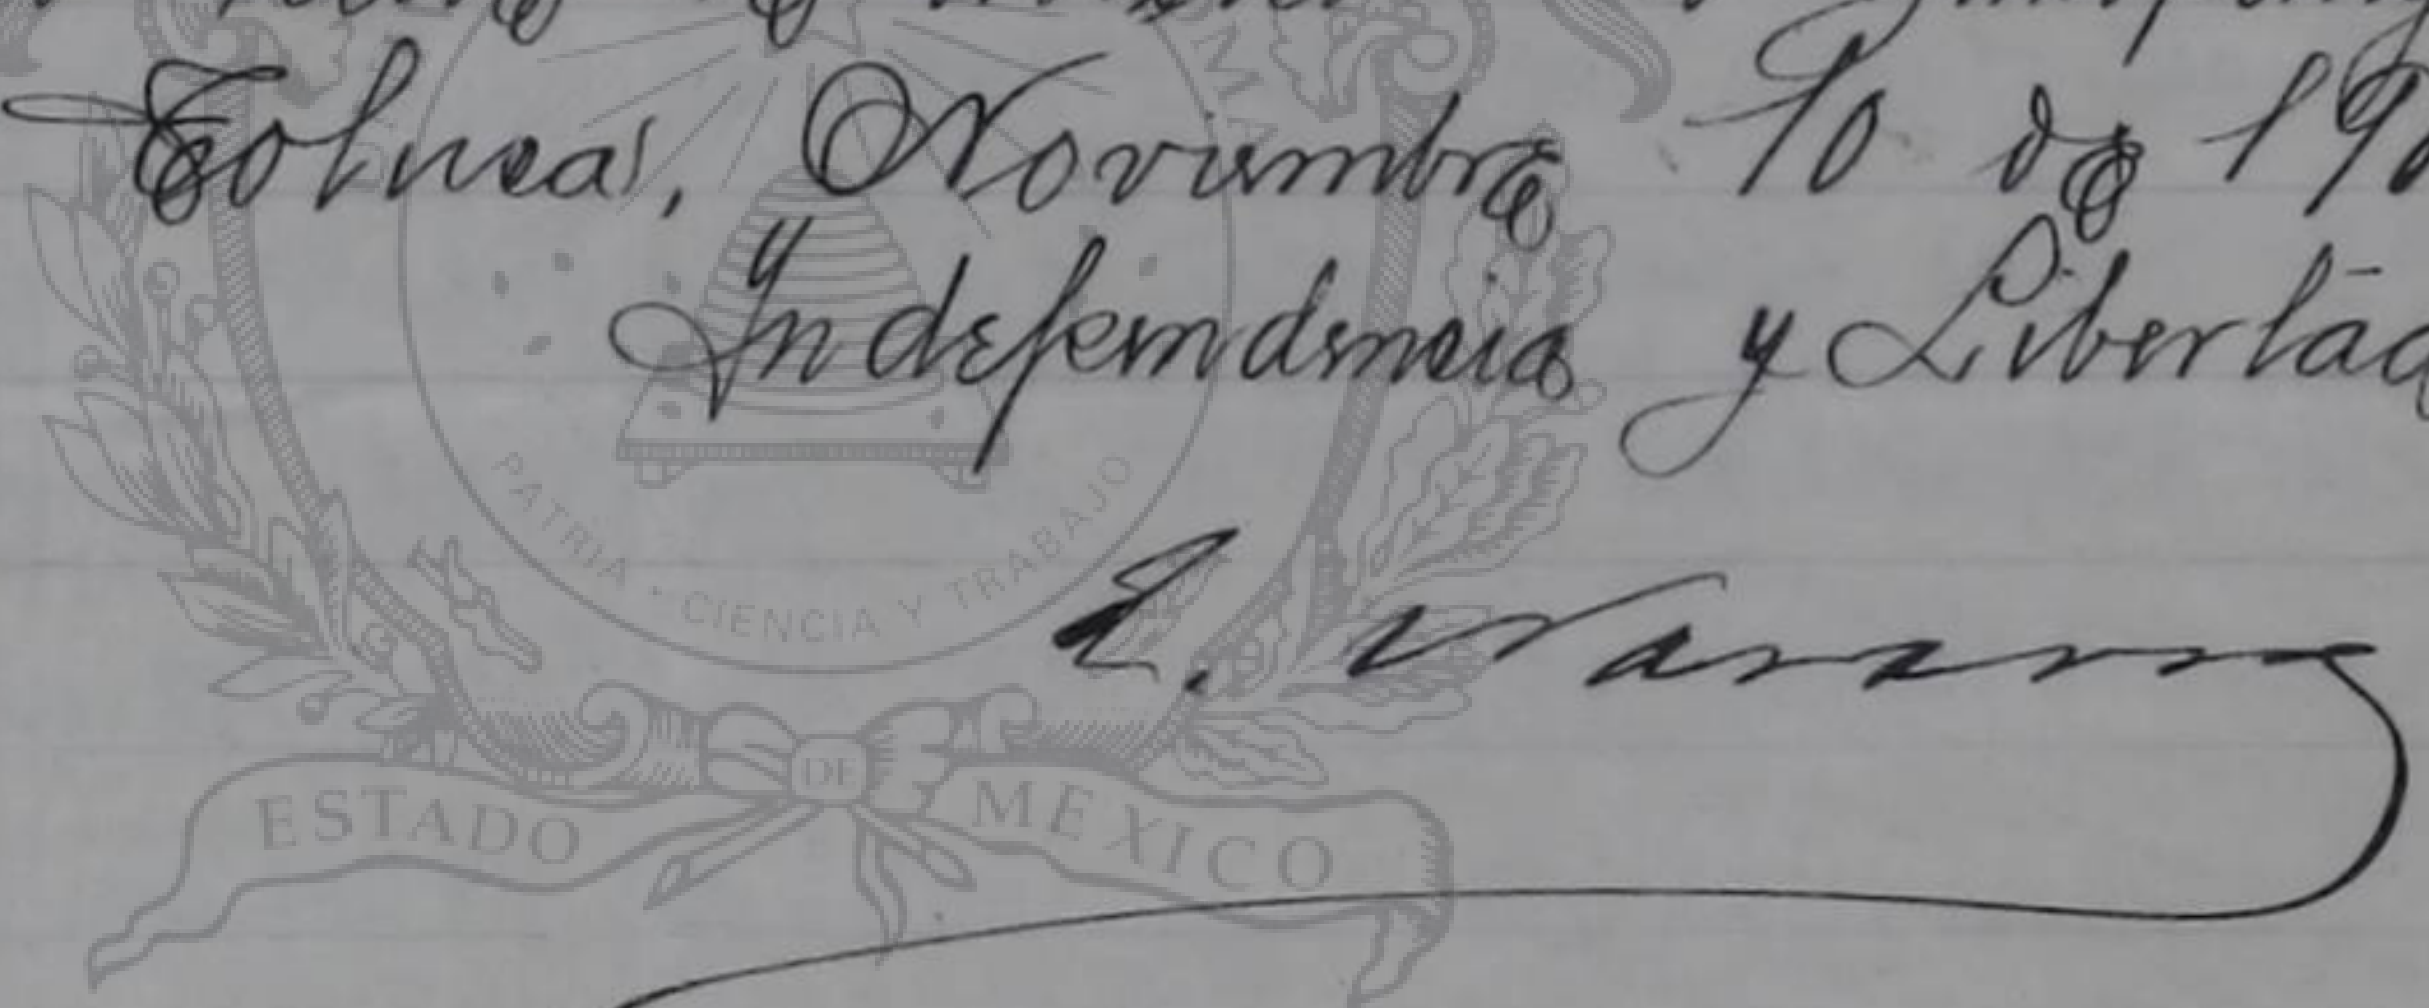 Toluca, Noviembre 10 de 19
Independencia y Libertad
E. Navarro
PATRIA - CIENCIA Y TRABAJO
ESTADO DE MEXICO